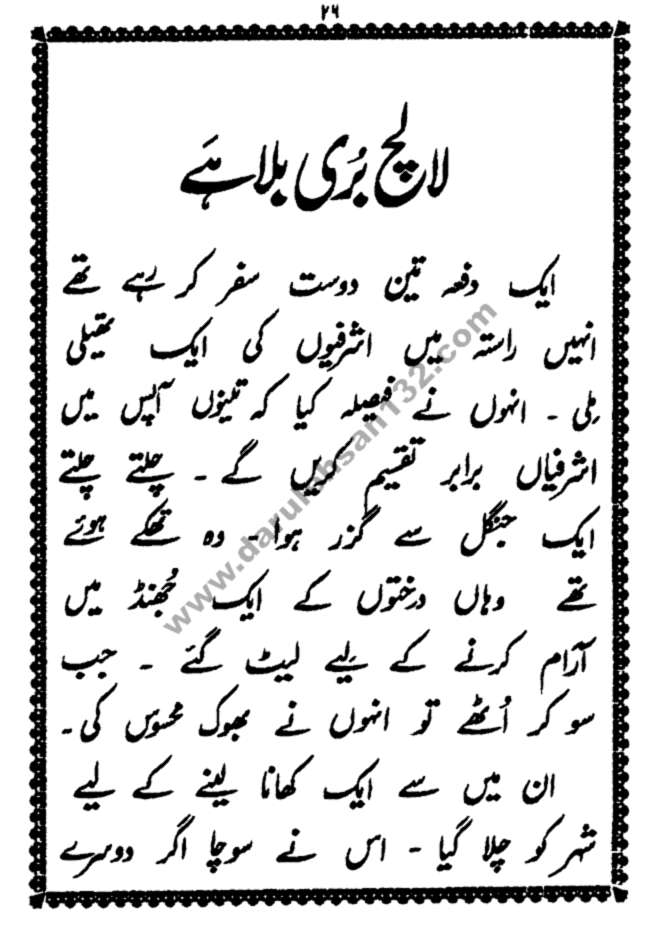 ۲۶
لالچ بُری بلا ہَے
ایک دفعہ تین دوست سفر کر رہے تھے
انہیں راستہ میں اشرفیوں کی ایک تھیلی
مِلی ۔ انہوں نے فیصلہ کیا کہ تینوں آپس میں
اشرفیاں برابر تقسیم کریں گے ۔ چلتے چلتے
ایک جنگل سے گزر ہوا ۔ وہ تھکے ہوئے
تھے وہاں درختوں کے ایک جُھنڈ میں
آرام کرنے کے لیے لیٹ گئے ۔ جب
سو کر اُٹھے تو انہوں نے بھوک محسوس کی ۔
ان میں سے ایک کھانا لینے کے لیے
شہر کو چلا گیا ۔ اس نے سوچا اگر دوسرے
www.darulehsan132.com